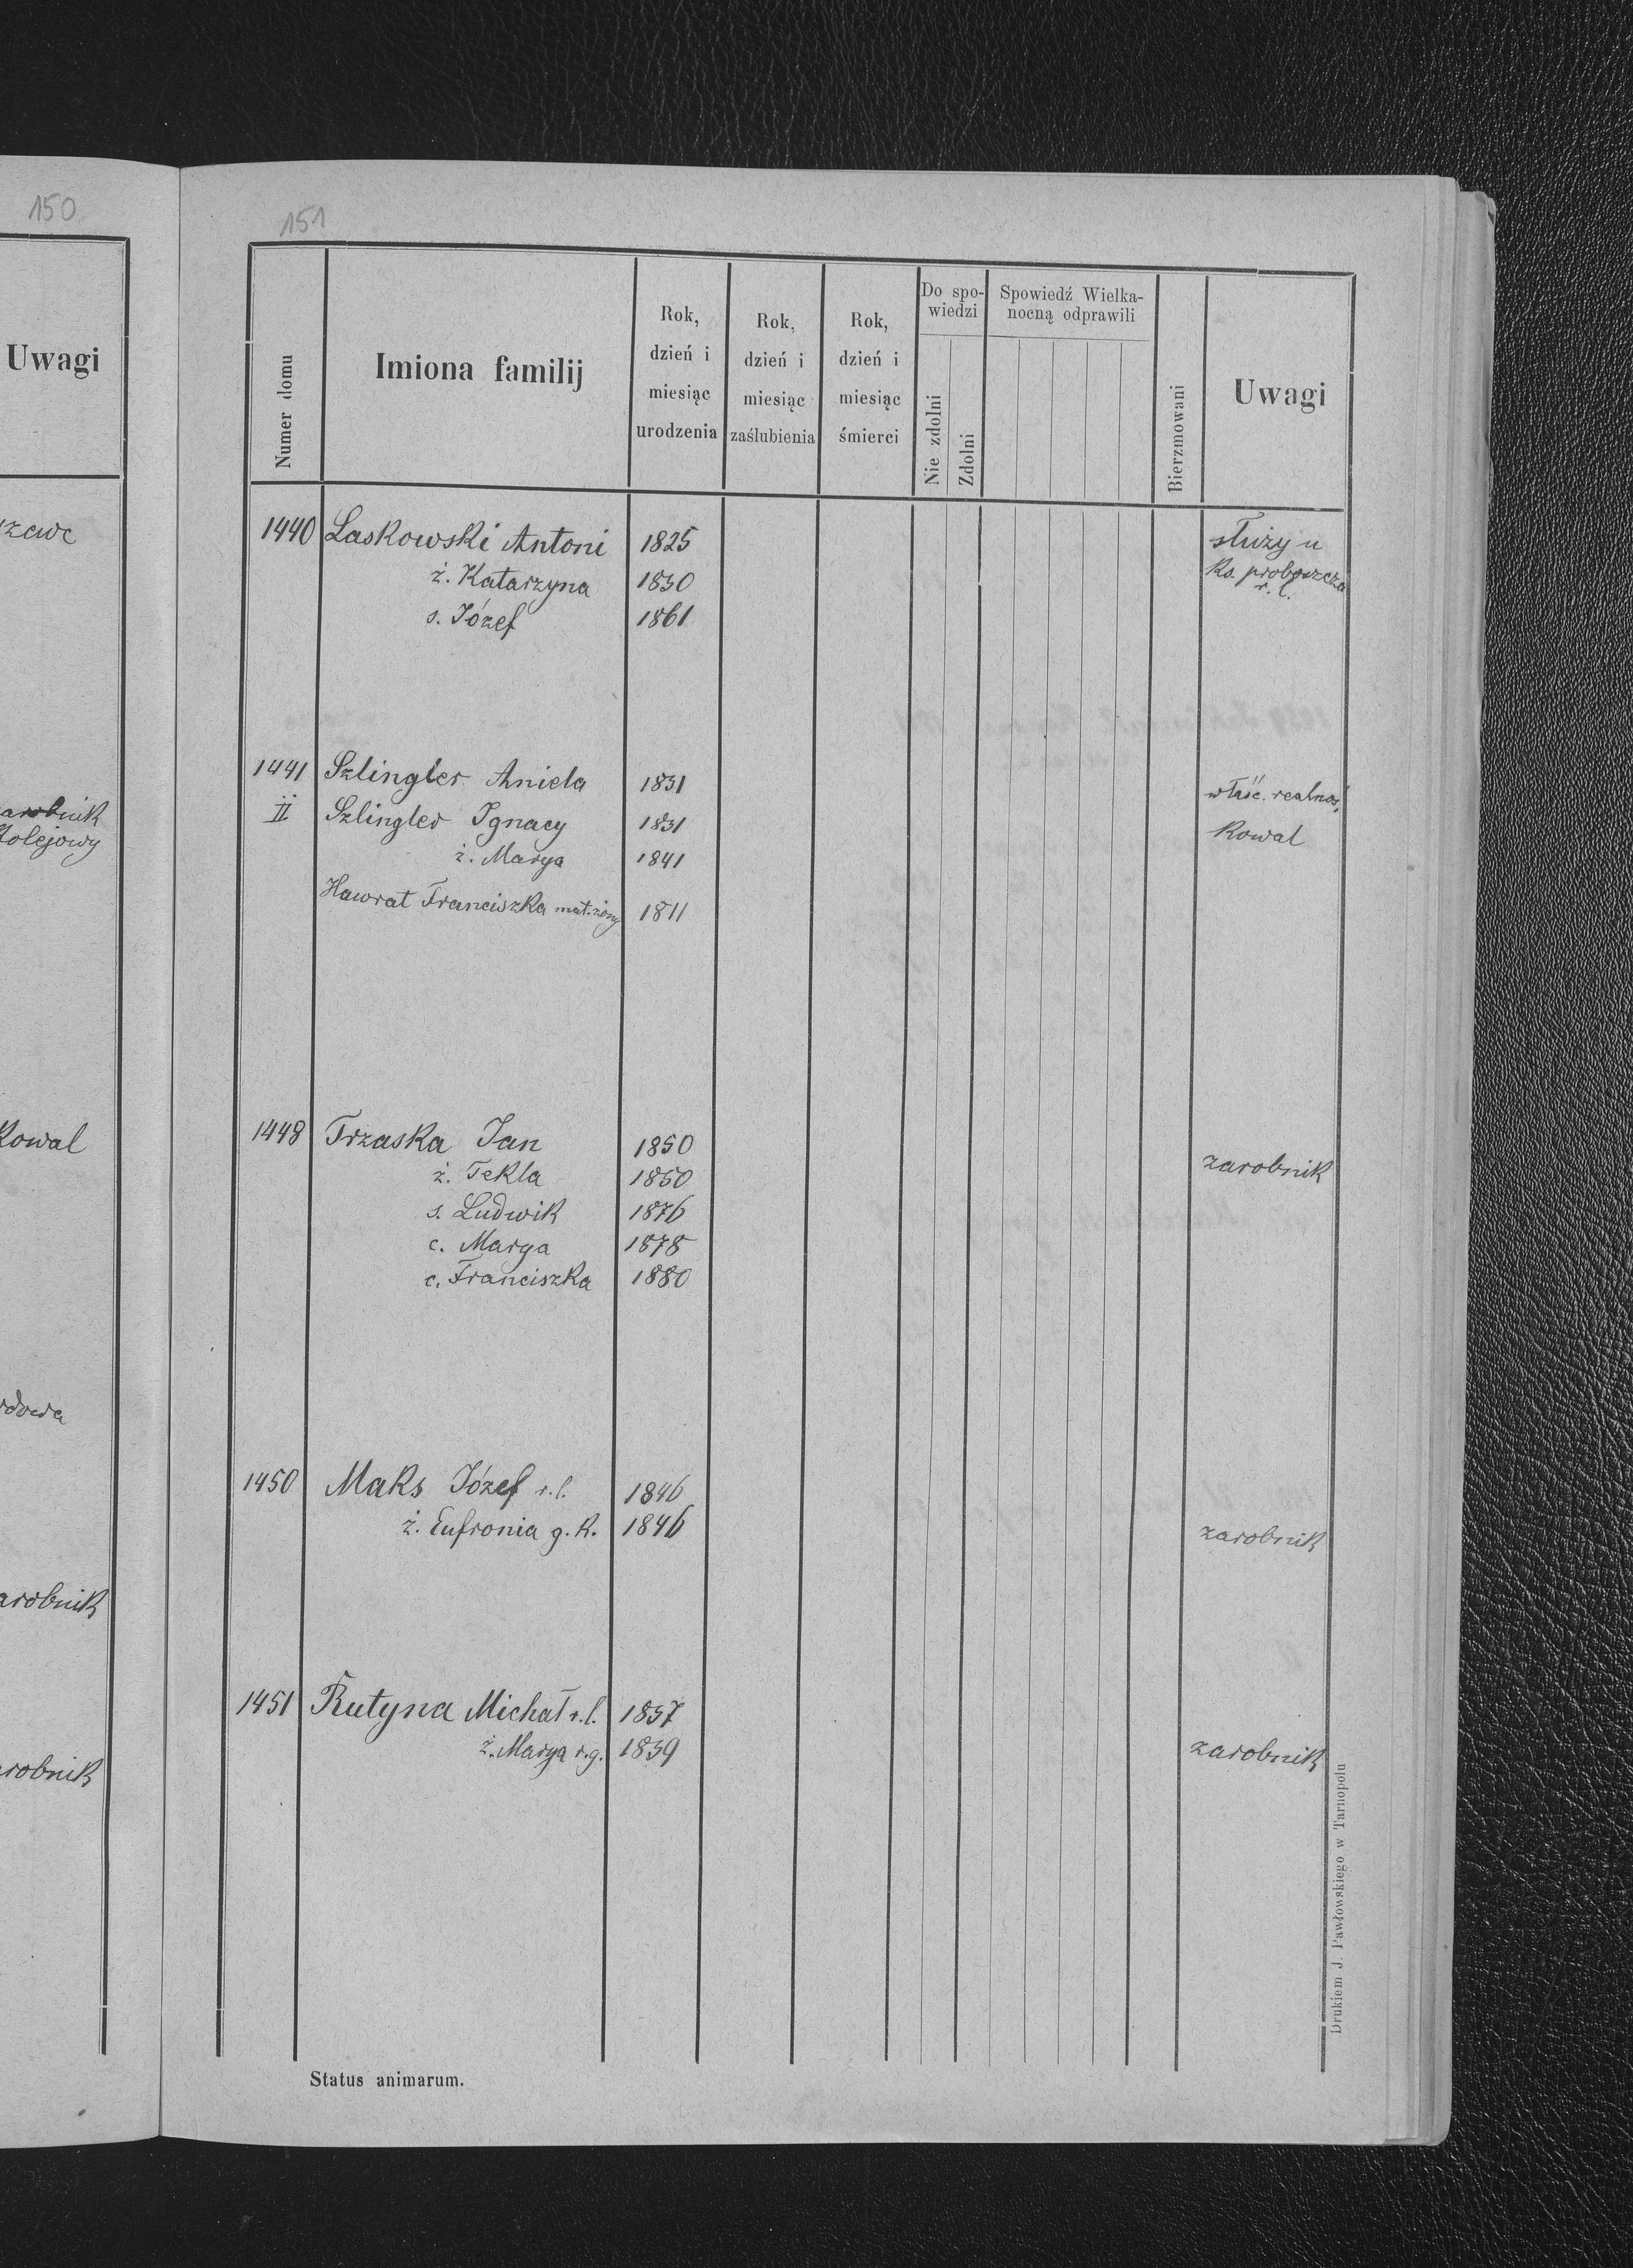 150
Uwagi
kolejowy
151
Numer domu
Imiona familij
Rok,
dzień i
miesiąc
urodzenia
Rok,
dzień i
miesiąc
zaślubienia
Rok,
dzień i
miesiąc
śmierci
Do spo-
wiedzi
Nie zdolni
Zdolni
Spowiedź Wielka-
nocną odprawili
Bierzmowani
Uwagi
1440 Laskowski Antoni 1825 służy u
ż. Katarzyna 1830 ks. proboszcza
r. l.
s. Józef 1861
1441 Szlingler Aniela 1831 właśc. realnoś,
II Szlingler Ignacy 1831 kowal
ż. Marya 1841
Hawrat Franciszka mat. żony 1811
1448 Trzaska Jan 1850 zarobnik
ż. Tekla 1850
s. Ludwik 1876
c. Marya 1878
c. Franciszka 1880
1450 Maks Józef r. l. 1846
ż. Eufronia g. k. 1846 zarobnik
1451 Rutyna Michał r. l. 1837
ż. Marya r. g. 1839 zarobnik
Status animarum.
Drukiem J. Pawłowskiego w Tarnopolu